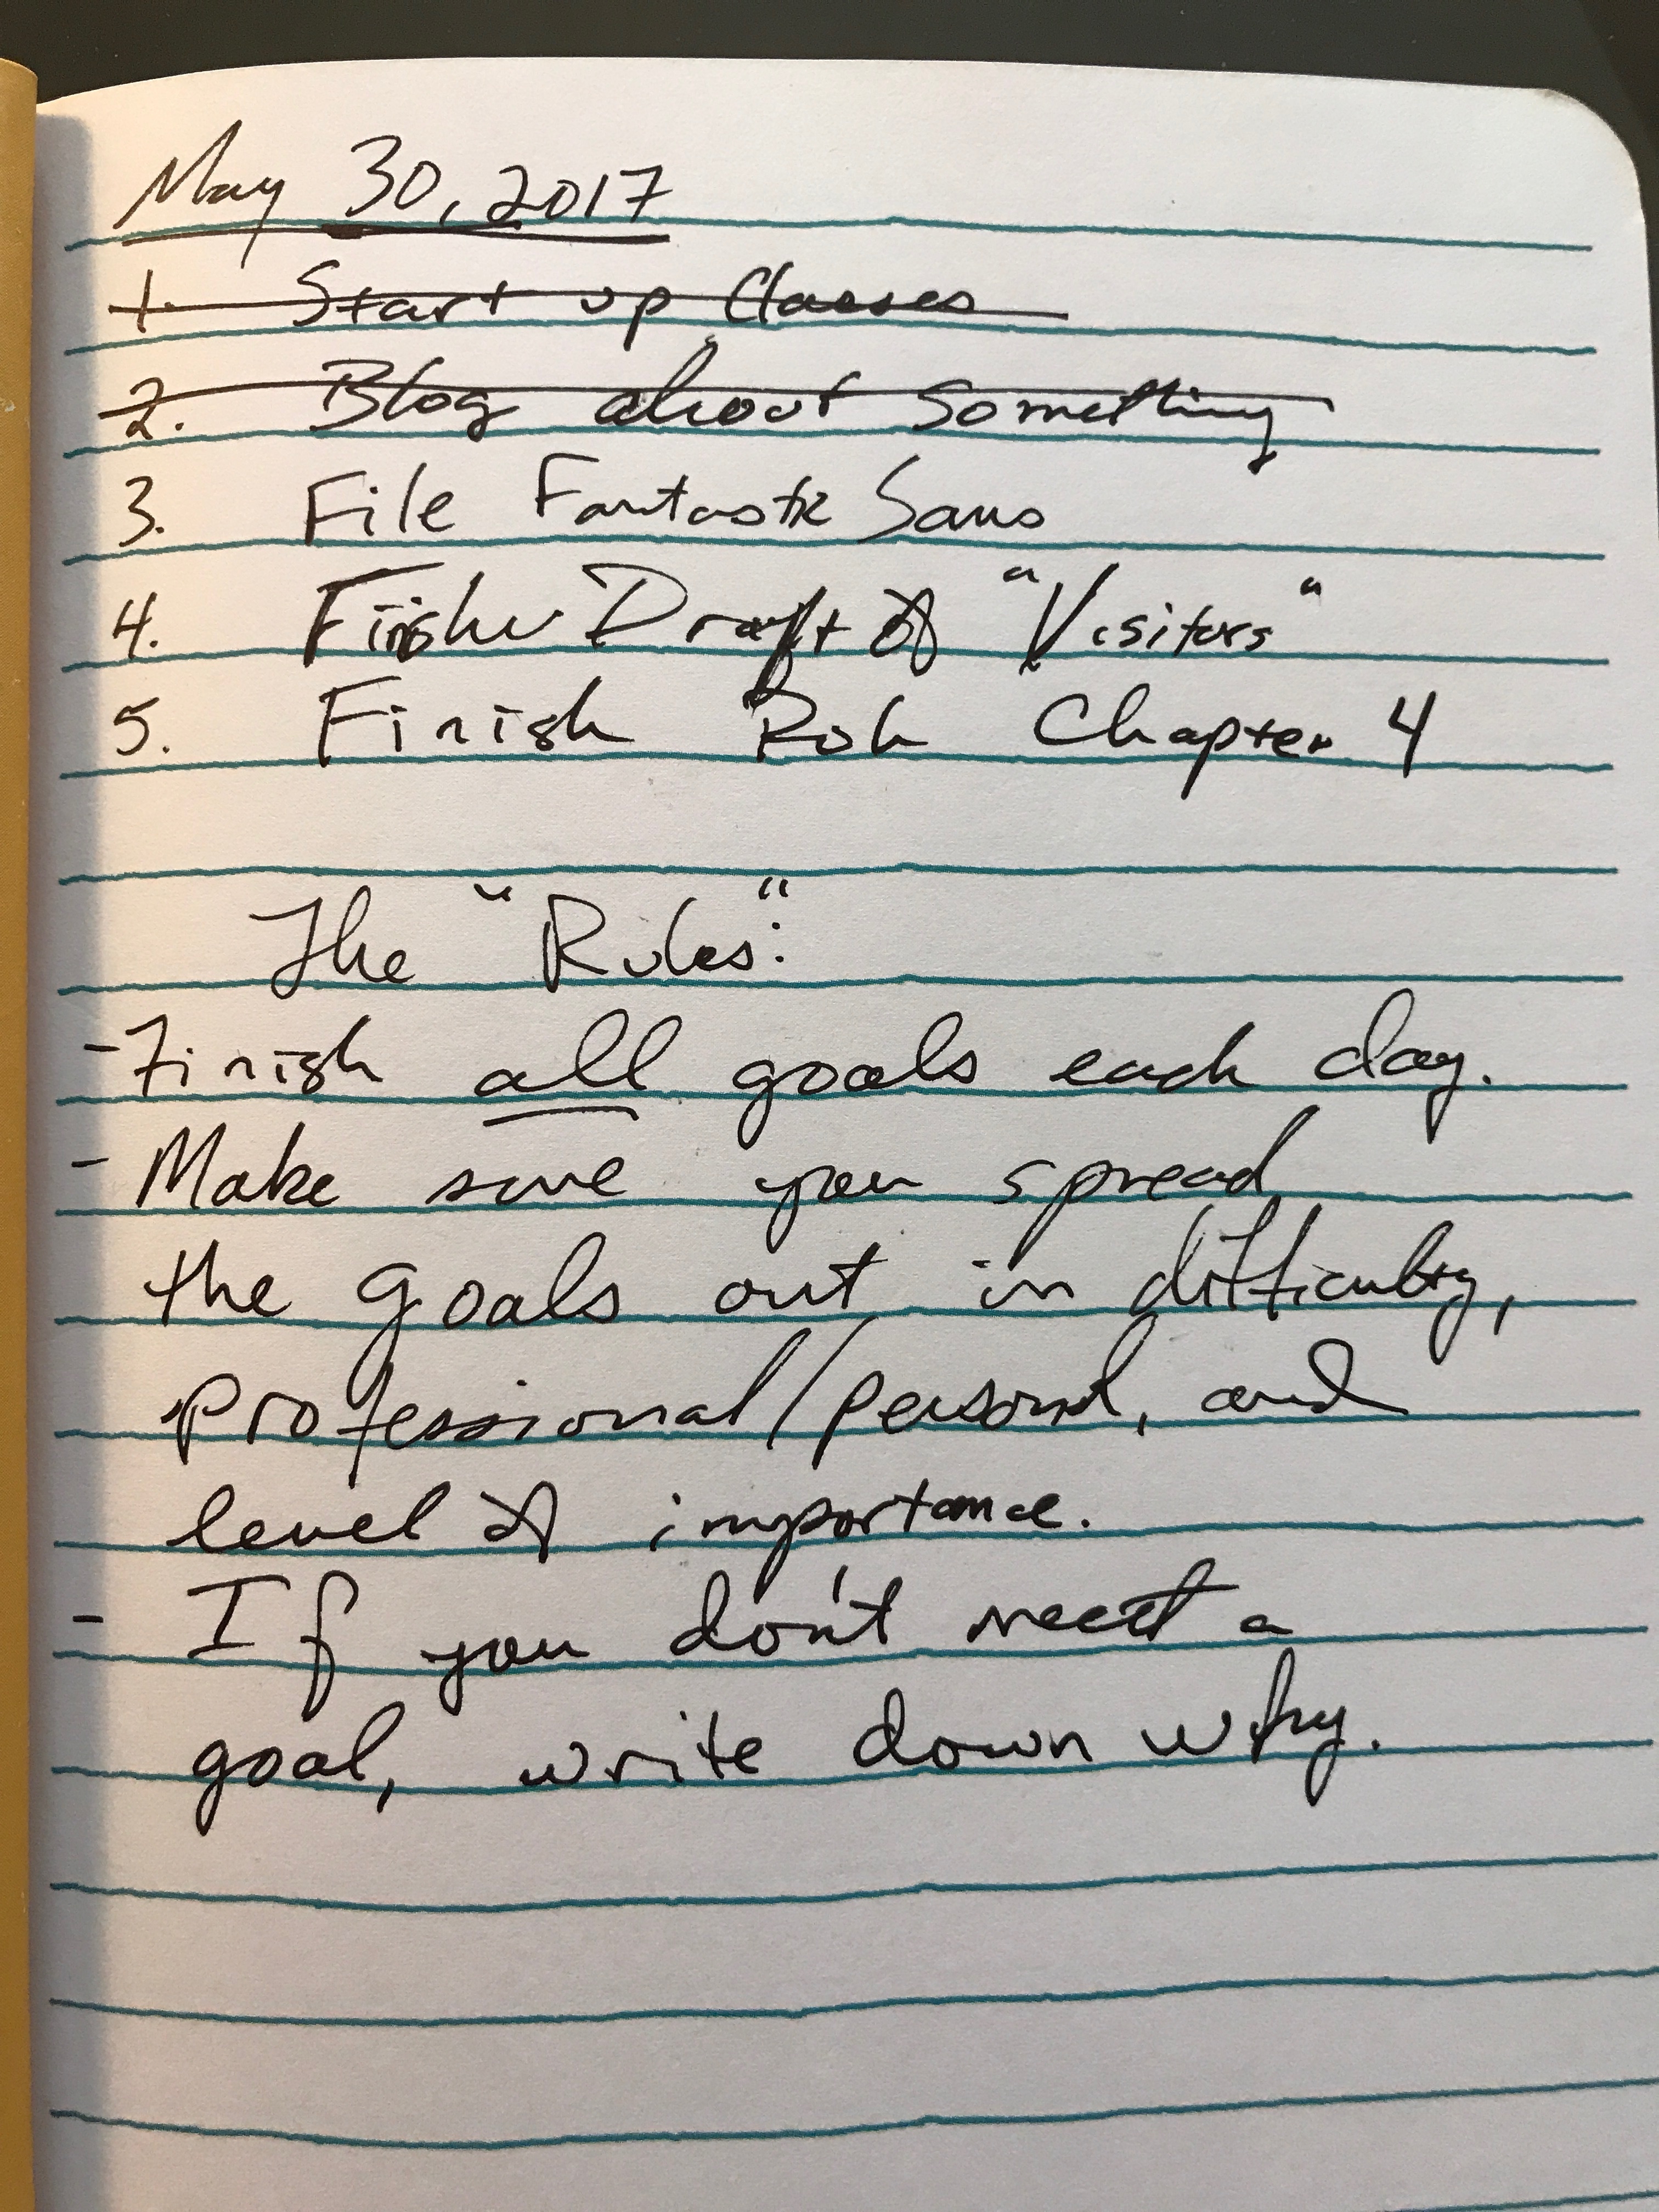 May 30, 2017
1. Start up Classes
2. Blog about something
3. File Fantastic
4. Draft of "Visitors"
5. Finish Chapter 4
The "Rules":
- Finish all goals each day.
- Make sure you spread
the goals out in difficulty,
professional/personal, and
level of importance.
- If you don't meet a
goal, write down why.